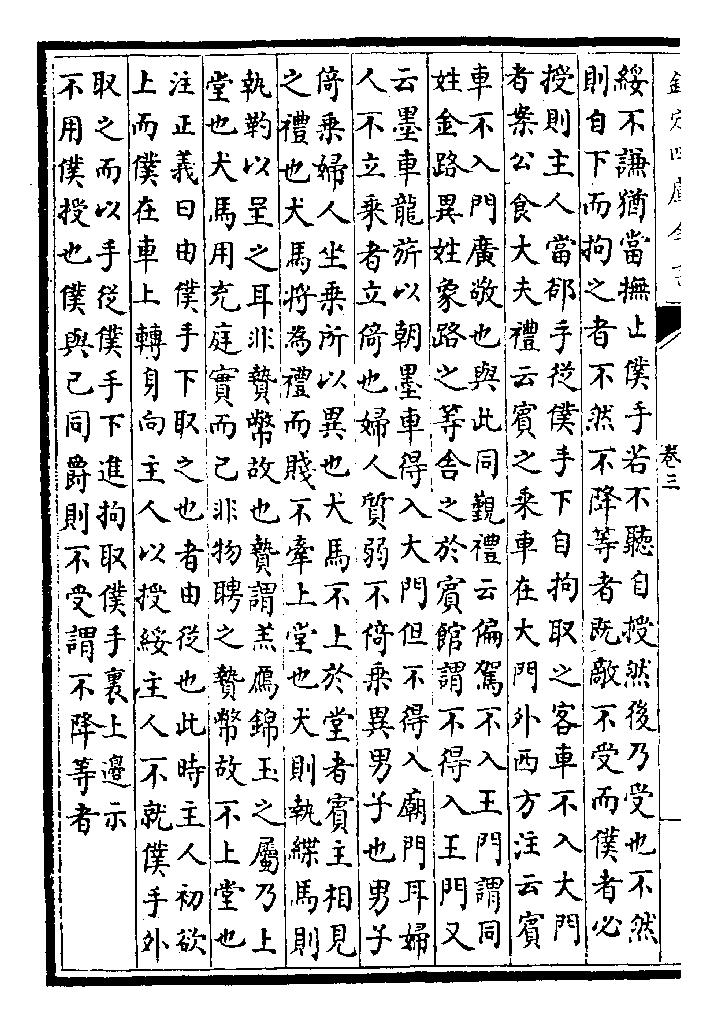 欽定四庫全書
卷三
綏不謙猶當撫止僕手若不聽自授然後乃受也不然
則自下而拘之者不然不降等者既敵不受而僕者必
授則主人當卻手從僕手下自拘取之客車不入大門
者案公食大夫禮云賓之乘車在大門外西方注云賓
車不入門廣敬也與此同覲禮云偏駕不入王門謂同
姓金路異姓象路之等舍之於賓館謂不得入王門又
云墨車龍旂以朝墨車得入大門但不得入廟門耳婦
人不立乘者立倚也婦人質弱不倚乘異男子也男子
倚乘婦人坐乘所以異也犬馬不上於堂者賓主相見
之禮也犬馬將為禮而賤不牽上堂也犬則執緤馬則
執靮以呈之耳非贄幣故也贄謂羔鴈錦玉之屬乃上
堂也犬馬用充庭實而已非物聘之贄幣故不上堂也
注正義曰由僕手下取之也者由從也此時主人初欲
上而僕在車上轉身向主人以授綏主人不就僕手外
取之而以手從僕手下進拘取僕手裏上邊示
不用僕授也僕與己同爵則不受謂不降等者